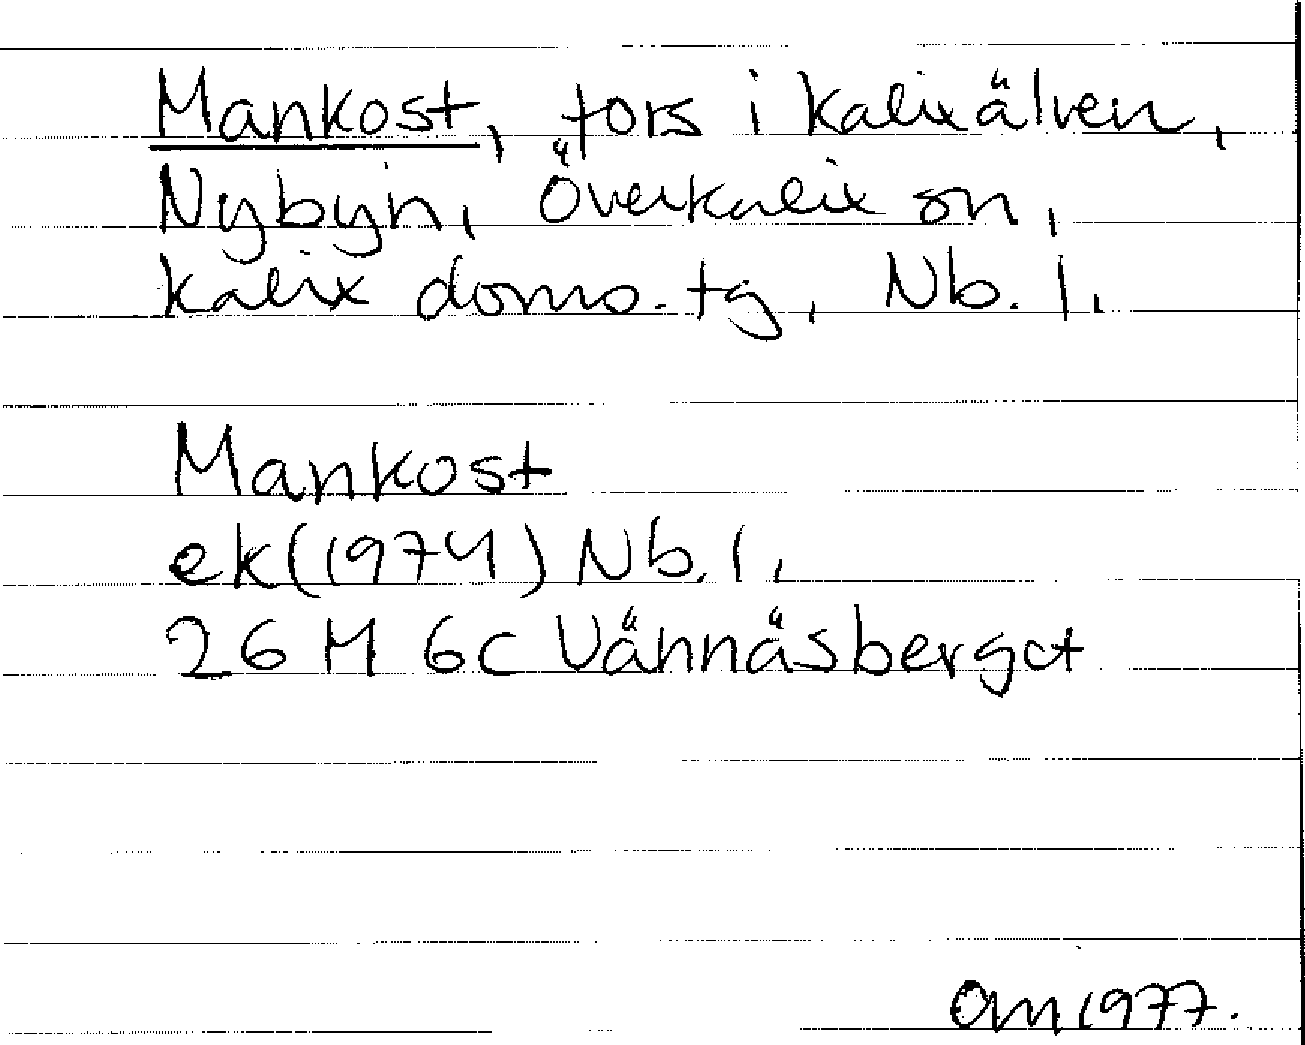 Mankost, fors i Kalixälven,
Nybyn, Överkalix sn,
Kalix doms.tg, Nb. l.
Mankost
ek(1974) Nb. l,
26 M 6c Vännäsberget
OM 1977.